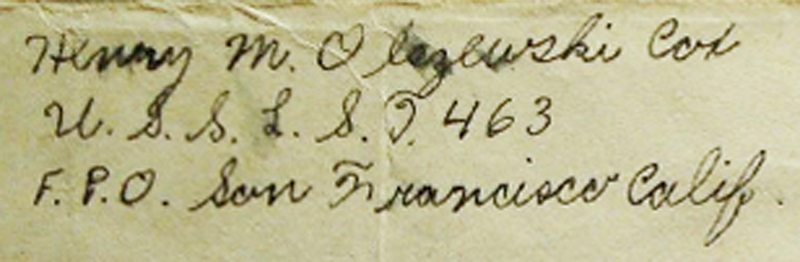 Henry M. Olszewski Cox
U. S. S. L. S. T. 463
F. P. O. San Francisco Calif.